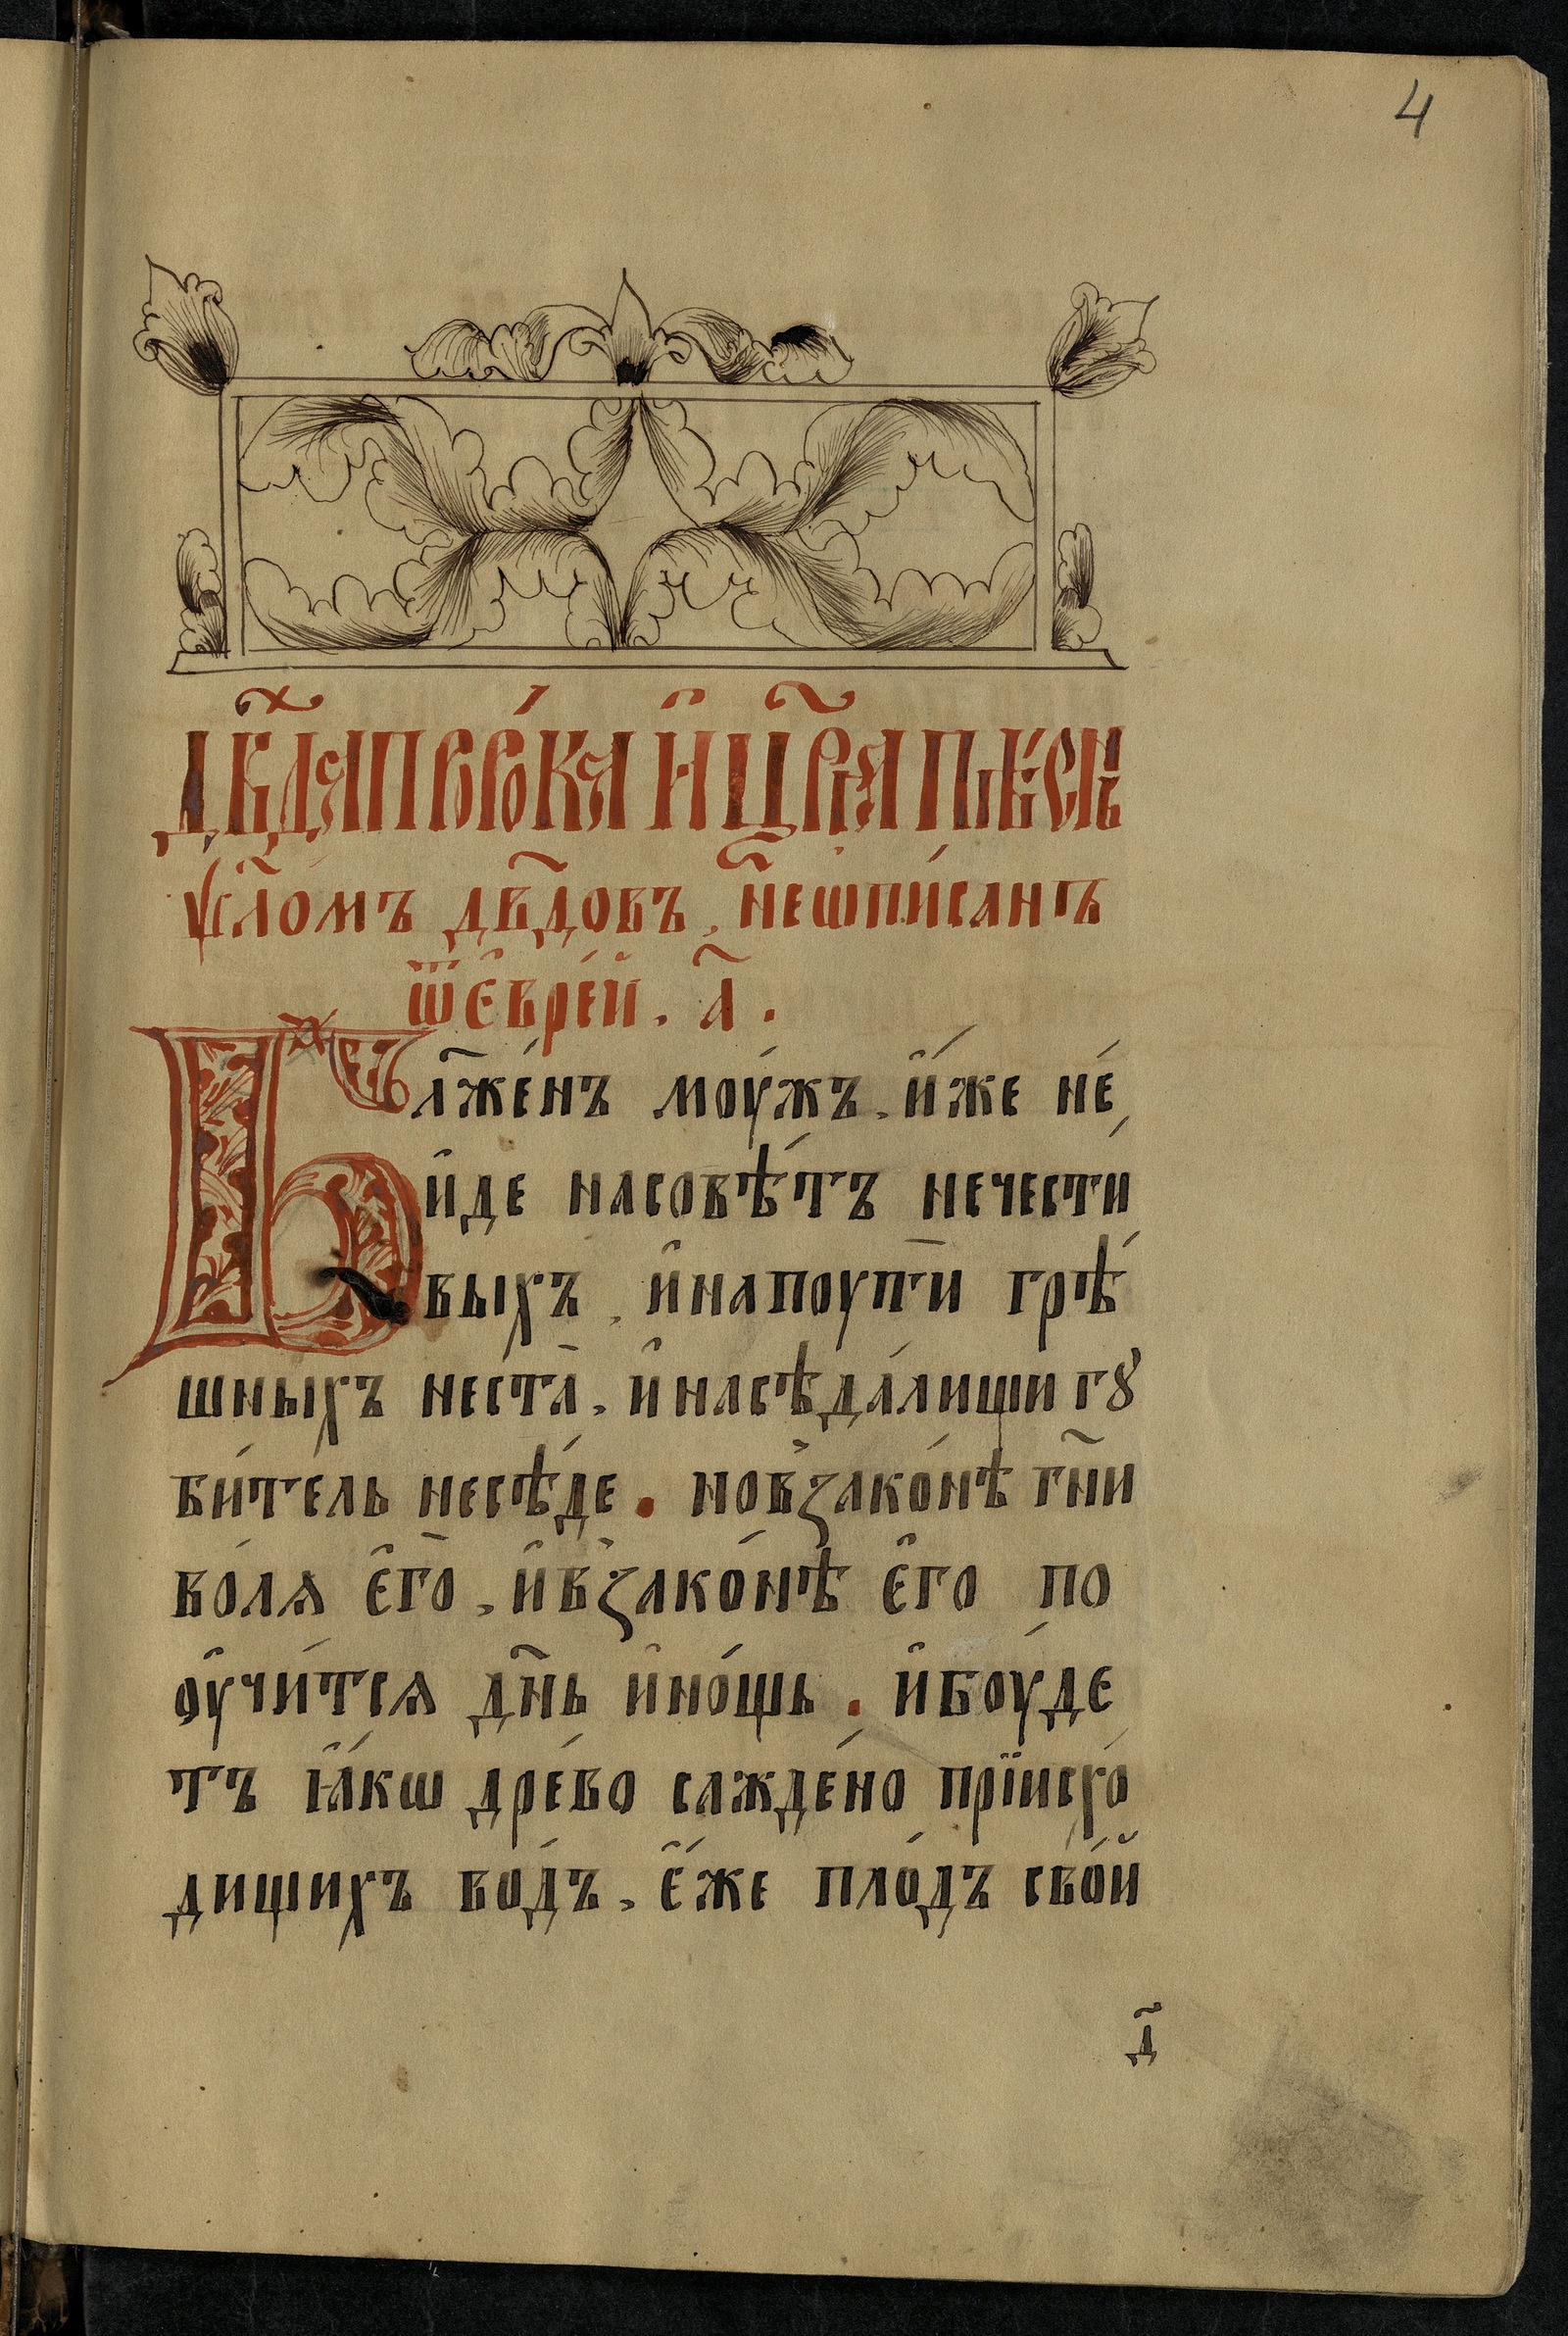 4
Дв҃дапроро́ка и҆ цр҃ѧ пѣснь
ѱл҃омъ дв҃дов̾ъ, не҃ѡпи́санъ
ѿ є҆вре́й. а҃.
Бл҃же́нъ моу́жъ, и҆́же не́
и҆де насовѣ́тъ нечести́
выхъ, и҆напоуп̾ти грѣ́
шныхъ неста̀, и҆насѣда́лищи гꙋ
би́тель несѣ́де. нов̾зако́нѣ гн҃и
во́лѧ є҆го̀, и҆в̾зако́нѣ є҆го по
оу҆чи́тсѧ дн҃ь и҆но́щь. и҆боуде
тъ ꙗ҆́кѡ дре́во сажде́но прїисхо́
дищихъ во́дъ, є҆́же пло́дъ сво́й
д҃